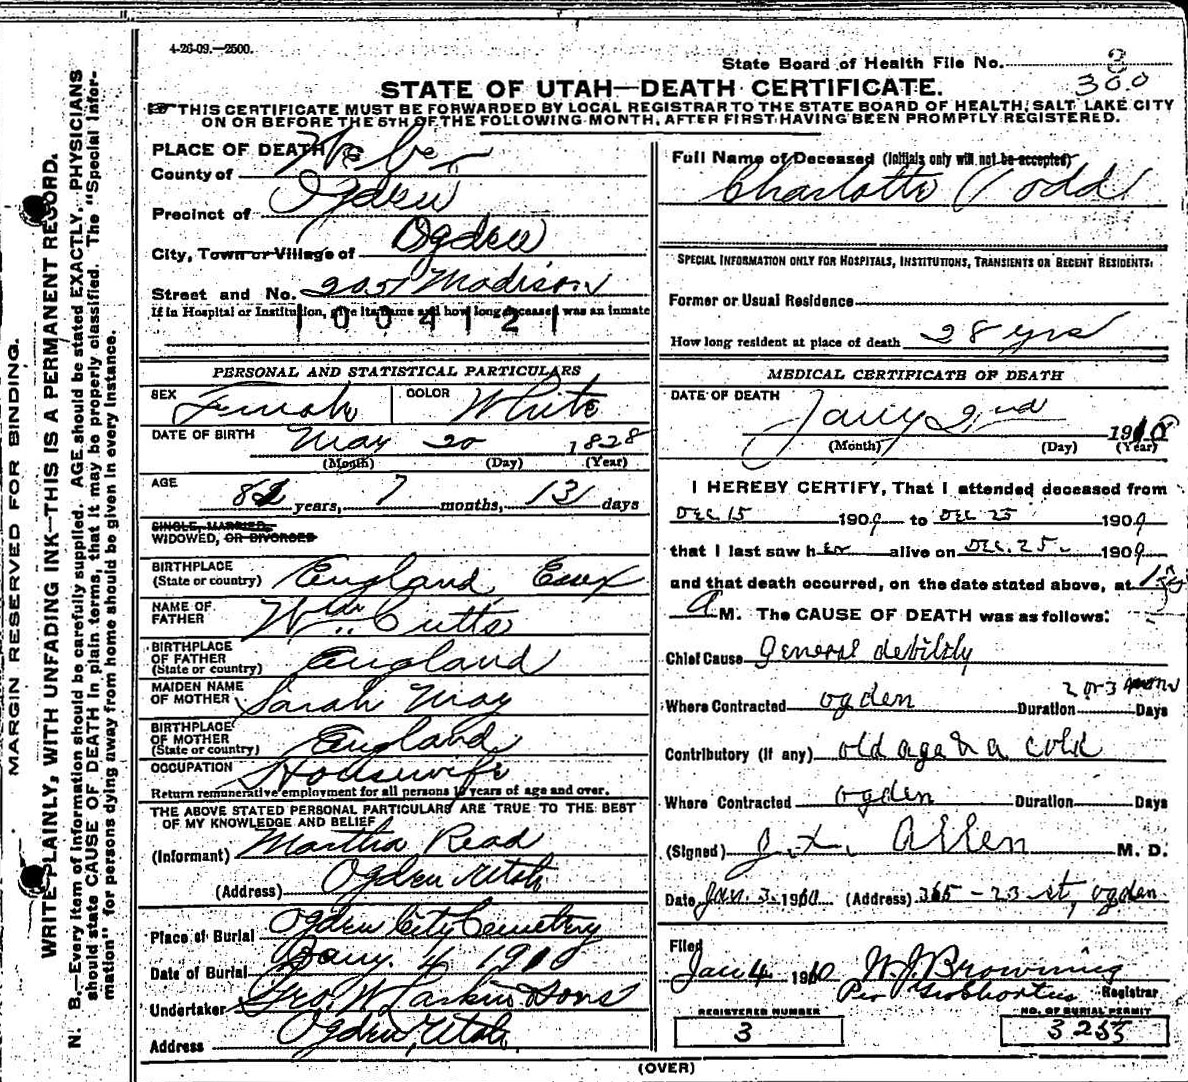 4-26-09.—2500.
State Board of Health File No. 3
300
STATE OF UTAH—DEATH CERTIFICATE.
THIS CERTIFICATE MUST BE FORWARDED BY LOCAL REGISTRAR TO THE STATE BOARD OF HEALTH, SALT LAKE CITY
ON OR BEFORE THE 5TH OF THE FOLLOWING MONTH, AFTER FIRST HAVING BEEN PROMPTLY REGISTERED.
MARGIN RESERVED FOR BINDING.
WRITE PLAINLY, WITH UNFADING INK—THIS IS A PERMANENT RECORD.
N. B.—Every item of information should be carefully supplied. AGE should be stated EXACTLY. PHYSICIANS
should state CAUSE OF DEATH in plain terms, that it may be properly classified. The "Special Infor-
mation" for persons dying away from home should be given in every instance.
PLACE OF DEATH
County of Weber
Precinct of Ogden
City, Town or Village of Ogden
Street and No. 2051 Madison
If in Hospital or Institution, give its name and how long deceased was an inmate
1004121
PERSONAL AND STATISTICAL PARTICULARS
SEX Female COLOR White
DATE OF BIRTH May 20 1828
(Month) (Day) (Year)
AGE 81 years, 7 months, 13 days
SINGLE, MARRIED,
WIDOWED, OR DIVORCED
BIRTHPLACE
(State or country) England, Essex
NAME OF
FATHER Wm. Cutts
BIRTHPLACE
OF FATHER
(State or country) England
MAIDEN NAME
OF MOTHER Sarah May
BIRTHPLACE
OF MOTHER
(State or country) England
OCCUPATION Housewife
Return remunerative employment for all persons 10 years of age and over.
THE ABOVE STATED PERSONAL PARTICULARS ARE TRUE TO THE BEST
OF MY KNOWLEDGE AND BELIEF
(Informant) Martha Read
(Address) Ogden Utah
Place of Burial Ogden City Cemetery
Date of Burial Jany. 4 1910
Undertaker Geo. W Larkin Sons
Address Ogden, Utah.
Full Name of Deceased (Initials only will not be accepted)
Charlotte Todd
SPECIAL INFORMATION ONLY FOR HOSPITALS, INSTITUTIONS, TRANSIENTS OR RECENT RESIDENTS:
Former or Usual Residence
How long resident at place of death 28 yrs
MEDICAL CERTIFICATE OF DEATH
DATE OF DEATH
Jany 2nd 1910
(Month) (Day) (Year)
I HEREBY CERTIFY, That I attended deceased from
Dec 15 1909 to Dec 25 1909
that I last saw her alive on Dec. 25 1909
and that death occurred, on the date stated above, at
A M. The CAUSE OF DEATH was as follows:
Chief Cause general debility
Where Contracted ogden Duration 2 or 3 Days
Contributory (if any) old age & a cold
Where Contracted ogden Duration Days
(Signed) Allen M. D.
Date Jan. 3. 1910 (Address) 365 - 23 st, ogden
Filed
Jan 4 1910 W. J. Browning
Per Registrar
REGISTERED NUMBER
3
NO. OF BURIAL PERMIT
3255
(OVER)